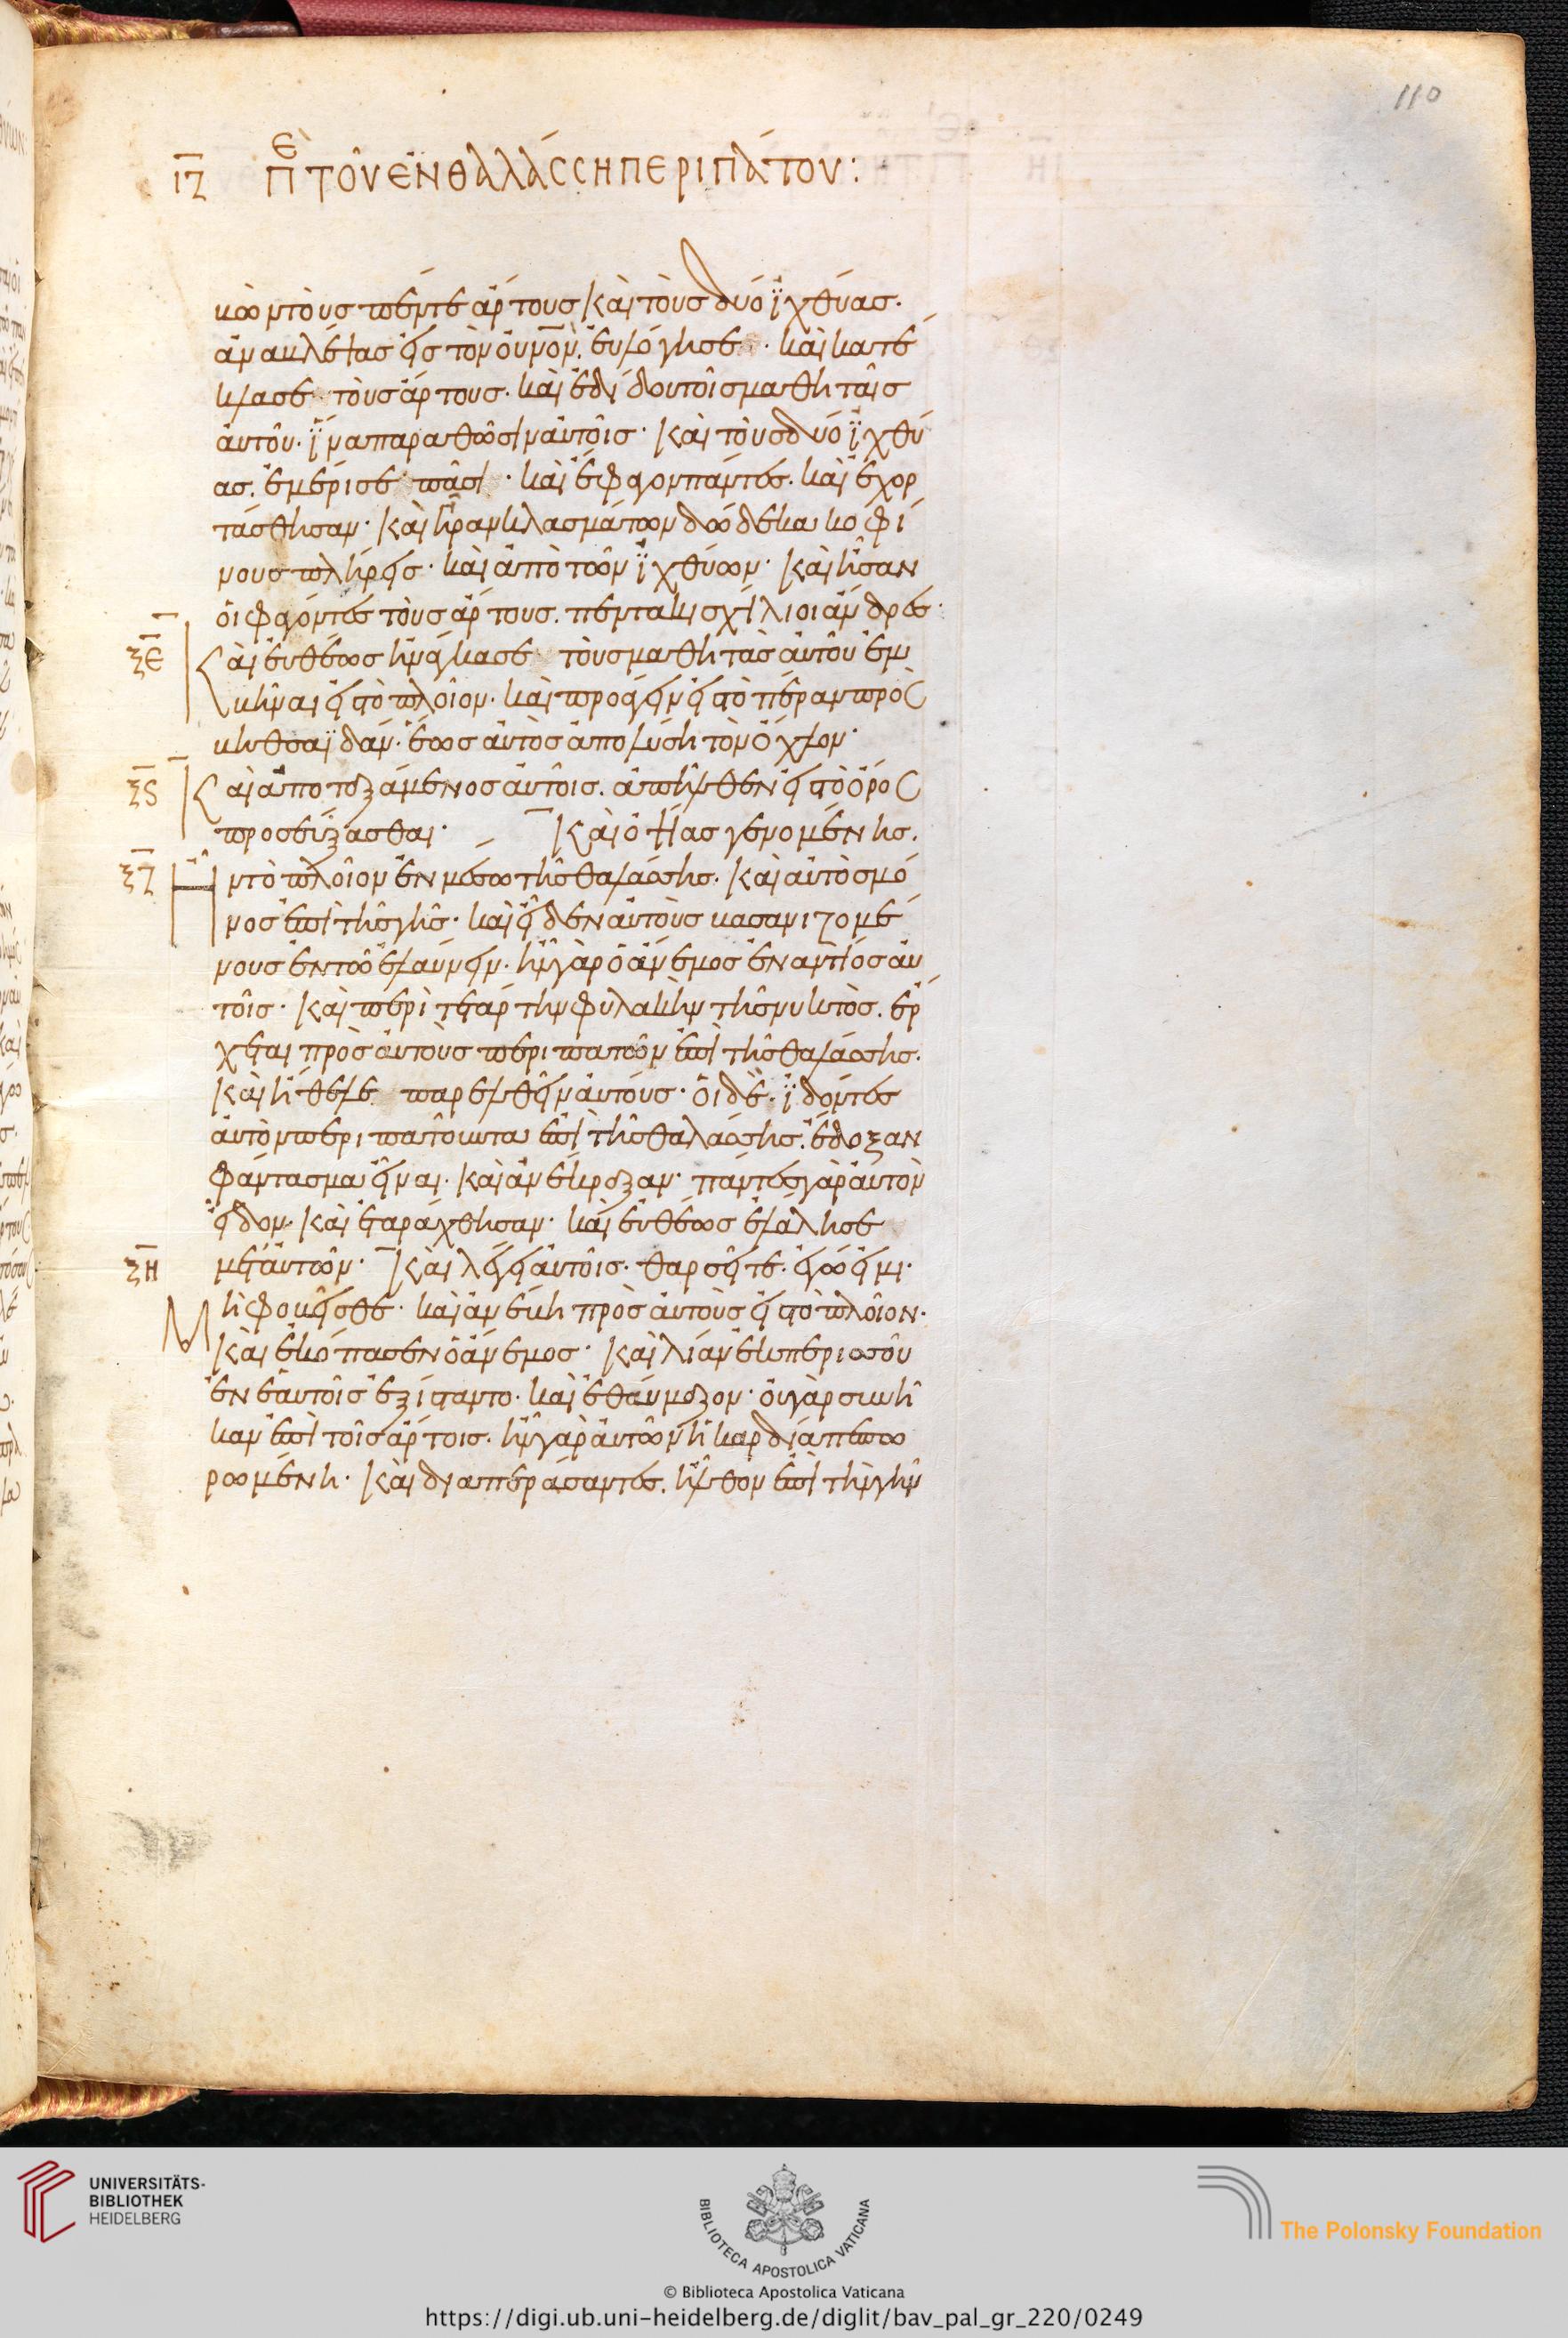 110
ιζ Πε τοῦ ἐν θαλάσση περιπάτου:
βὼν τοὺς πέντε ἄρτους καὶ τοὺς δύο ἰχθύας·
ἀναβλέψας εἰς τὸν οὐνὸν, ευλόγησε · καὶ κατέ
κλασε τοὺς ἄρτους· καὶ ἐδίδου τοῖς μαθηταῖς
αὐτοῦ· ἵνα παραθῶσιν αὐτοῖς· καὶ τοὺς δύο ἰχθύ
ας. ἐμέρισε πᾶσι · καὶ ἔφαγον πάντες· καὶ ἐχορ
τάσθησαν· καὶ ἦραν κλασμάτων δώδεκα κοφί
νους πλήρεις· καὶ ἀπὸ τῶν ἰχθύων· καὶ ἦσαν
οἱ φαγόντες τοὺς ἄρτους. πεντακισχίλιοι ἄνδρες·
ξε Καὶ εὐθέως ἠνάγκασε τοὺς μαθητὰς αὐτοῦ ἐμ
βῆναι εἰς τὸ πλοῖον· καὶ προάγειν εἰς τὸ πέραν προς
βηθσαϊδάν· ἕως αὐτὸς ἀπολύση τὸν ὄχλον·
ξς Καὶ ἀποταξάμενος αὐτοῖς. ἀπῆλθεν εἰς τὸ ὄρος
προσεύξασθαι· Καὶ ὀψίας γενομένης.
ξζ Ἦν τὸ πλοῖον ἐν μέσω τῆς θαλάσσης· καὶ αὐτὸς μό
νος ἐπὶ τῆς γῆς· καὶ εἶδεν αὐτοὺς βασανιζομέ
νους ἐν τῶ ἐλαύνειν· ἦν γὰρ ὁ ἄνεμος ἐναντίος αὐ
τοῖς· καὶ περὶ τετάρτην φυλακὴν τῆς νυκτὸς. ἔρ
χεται πρὸς αὐτοὺς περιπατῶν ἐπὶ τῆς θαλάσσης.
καὶ ἤθελε παρελθεῖν αὐτούς· οἱ δὲ. ἰδόντες
αὐτὸν περιπατοῦντα ἐπὶ τῆς θαλάσσης. ἔδοξαν
φάντασμα εἶναι· καὶ ἀνέκραξαν· πάντες γὰρ αὐτὸν
εἶδον· καὶ εταράχθησαν· καὶ εὐθέως ἐλάλησε
ξη μετ' αὐτῶν· Καὶ λέγει αὐτοῖς· θαρσεῖτε· ἐγώ εἰμι·
Μὴ φοβεῖσθε· καὶ ἀνέβη πρὸς αὐτοὺς εἰς τὸ πλοῖον·
καὶ ἐκόπασεν ὁ ἄνεμος· καὶ λίαν ἐκ περισσοῦ
ἐν ἑαυτοῖς ἐξίσταντο· καὶ ἐθαύμαζον· οὐ γὰρ συνῆ
καν ἐπὶ τοῖς ἄρτοις· ἦν γὰρ αὐτῶν ἡ καρδία πεπω
ρωμένη· καὶ διαπεράσαντες. ἦλθον ἐπὶ τὴν γῆν
UNIVERSITÄTS-
BIBLIOTHEK
HEIDELBERG
BIBLIOTECA APOSTOLICA VATICANA
The Polonsky Foundation
© Biblioteca Apostolica Vaticana
https://digi.ub.uni-heidelberg.de/diglit/bav_pal_gr_220/0249